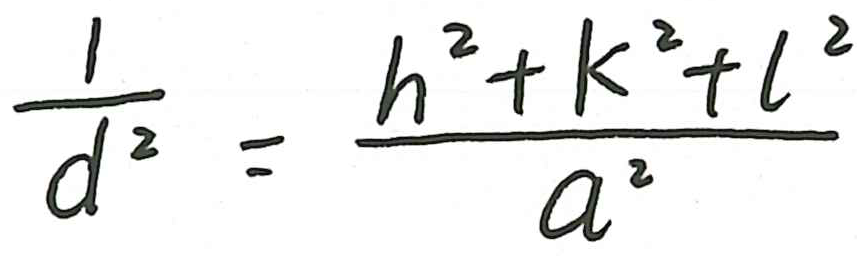 \frac{1}{d^2} = \frac{h^2 + k^2 + l^2}{a^2}